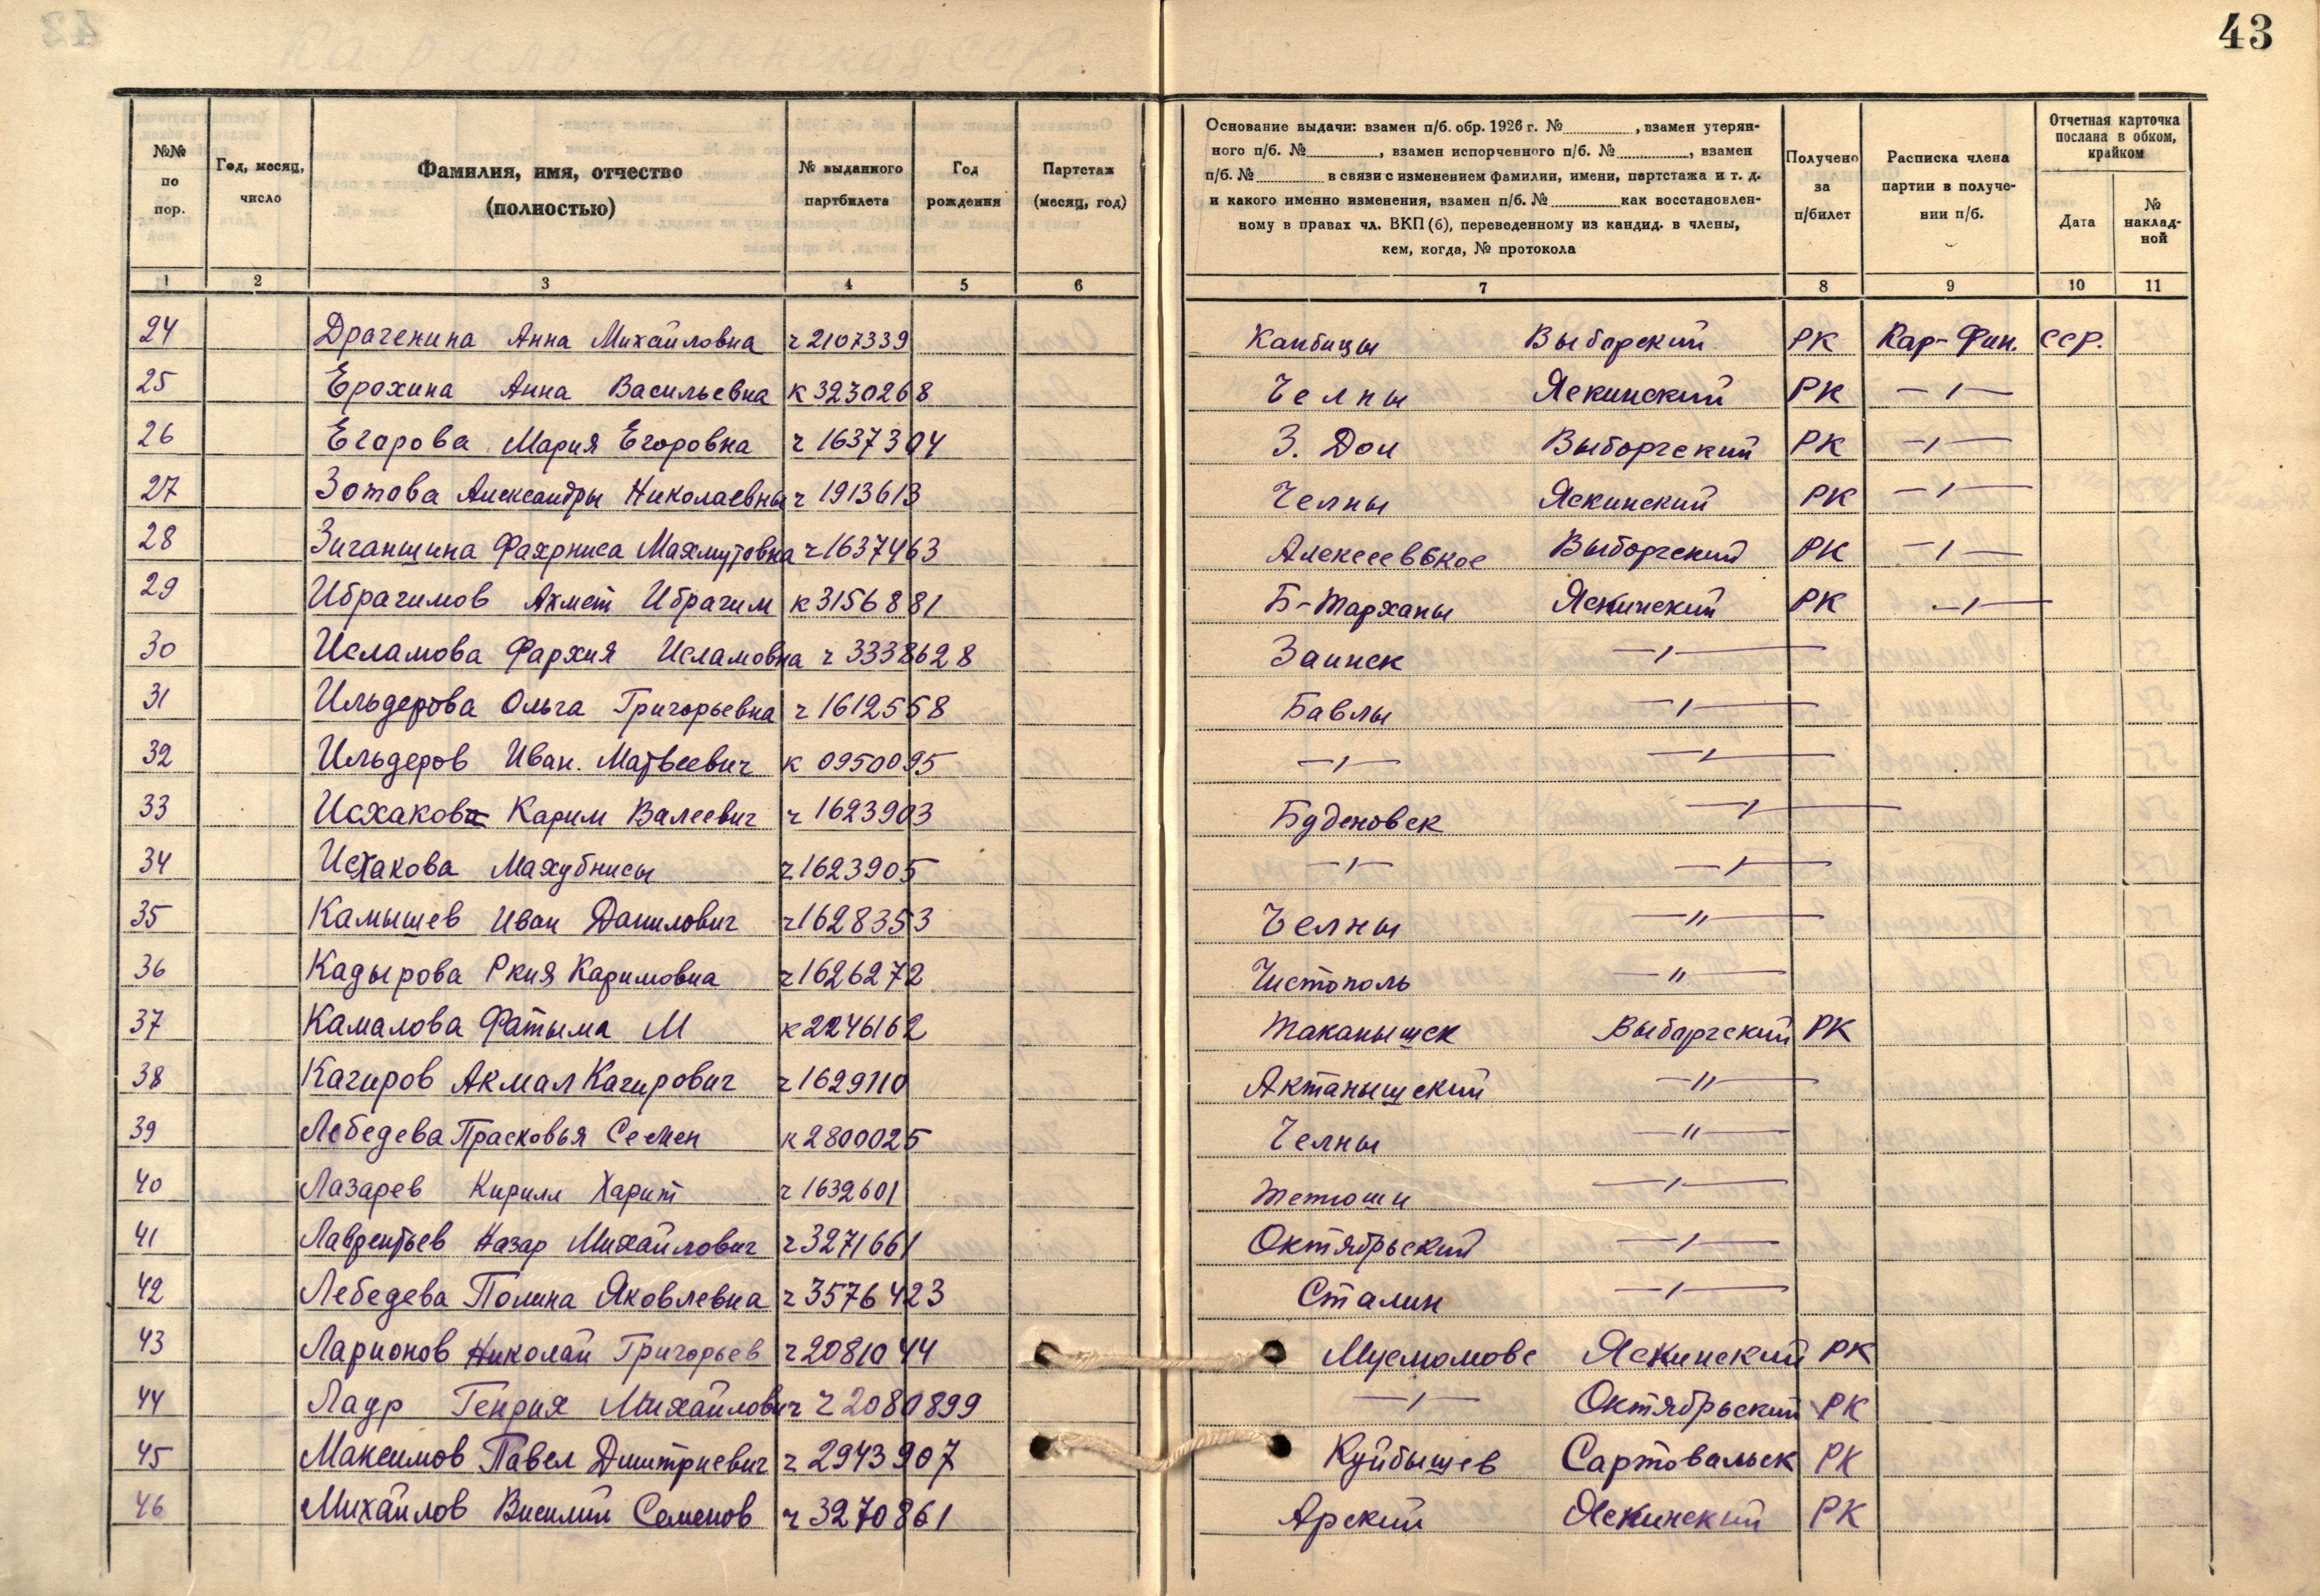 43
№№ по пор.
Год, месяц, число
Фамилия, имя, отчество (полностью)
№ выданного партбилета
Год рождения
Партстаж (месяц, год)
Основание выдачи: взамен п/б. обр. 1926 г. № , взамен утерян-
ного п/б. № , взамен испорченного п/б. № , взамен
п/б. № в связи с изменением фамилии, имени, партстажа и т. д.
и какого именно изменения, взамен п/б. № как восстановлен-
ному в правах чл. ВКП(б), переведенному из кандид. в члены,
кем, когда, № протокола
Получено за п/билет
Расписка члена партии в получе-нии п/б.
Отчетная карточка послана в обком, крайком
Дата
№ наклад-ной
1 2 3 4 5 6 7 8 9 10 11
24 Драченина Анна Михайловна ч 2107339 Кайбицы Выборский РК Кар-Фин. ССР.
25 Ерохина Анна Васильевна к 3230268 Челны Яскинский РК —〃—
26 Егорова Мария Егоровна ч 1637304 З. Дол Выборгский РК —〃—
27 Зотова Александры Николаевны ч 1913613 Челны Яскинский РК —〃—
28 Зиганшина Фахрниса Махмутовна ч 1637463 Алексеевское Выборгский РК —〃—
29 Ибрагимов Ахмет Ибрагим к 3156881 Б-Тарханы Яскинский РК —〃—
30 Исламова Фархия Исламовна ч 3338628 Заинск —〃—
31 Ильдерова Ольга Григорьевна ч 1612558 Бавлы —〃—
32 Ильдеров Иван. Матвеевич к 0950095 —〃— —〃—
33 Исхаков Карим Валеевич ч 1623903 Буденовск —〃—
34 Исхакова Махубнисы ч 1623905 —〃— —〃—
35 Камышев Иван Данилович ч 1628353 Челны —〃—
36 Кадырова Ркия Каримовна ч 1626272 Чистополь —〃—
37 Камалова Фатыма М к 2246162 Таканышск Выборгский РК
38 Кагиров Акмал Кагирович ч 1629110 Актанышский —〃—
39 Лебедева Прасковья Семен к 2800025 Челны —〃—
40 Лазарев Кирилл Харит ч 1632601 Тетюши —〃—
41 Лаврентьев Назар Михайлович ч 3271661 Октябрьский —〃—
42 Лебедева Полина Яковлевна ч 3576423 Сталин —〃—
43 Ларионов Николай Григорьев ч 2081044 Муслюмове Яскинский РК
44 Генрих Михайлович ч 2080899 —〃— Октябрьский РК
45 Максимов Павел Дмитриевич ч 2943907 Куйбышев Сартовальск РК
46 Михайлов Василий Семенов ч 3270861 Арский Яскинский РК